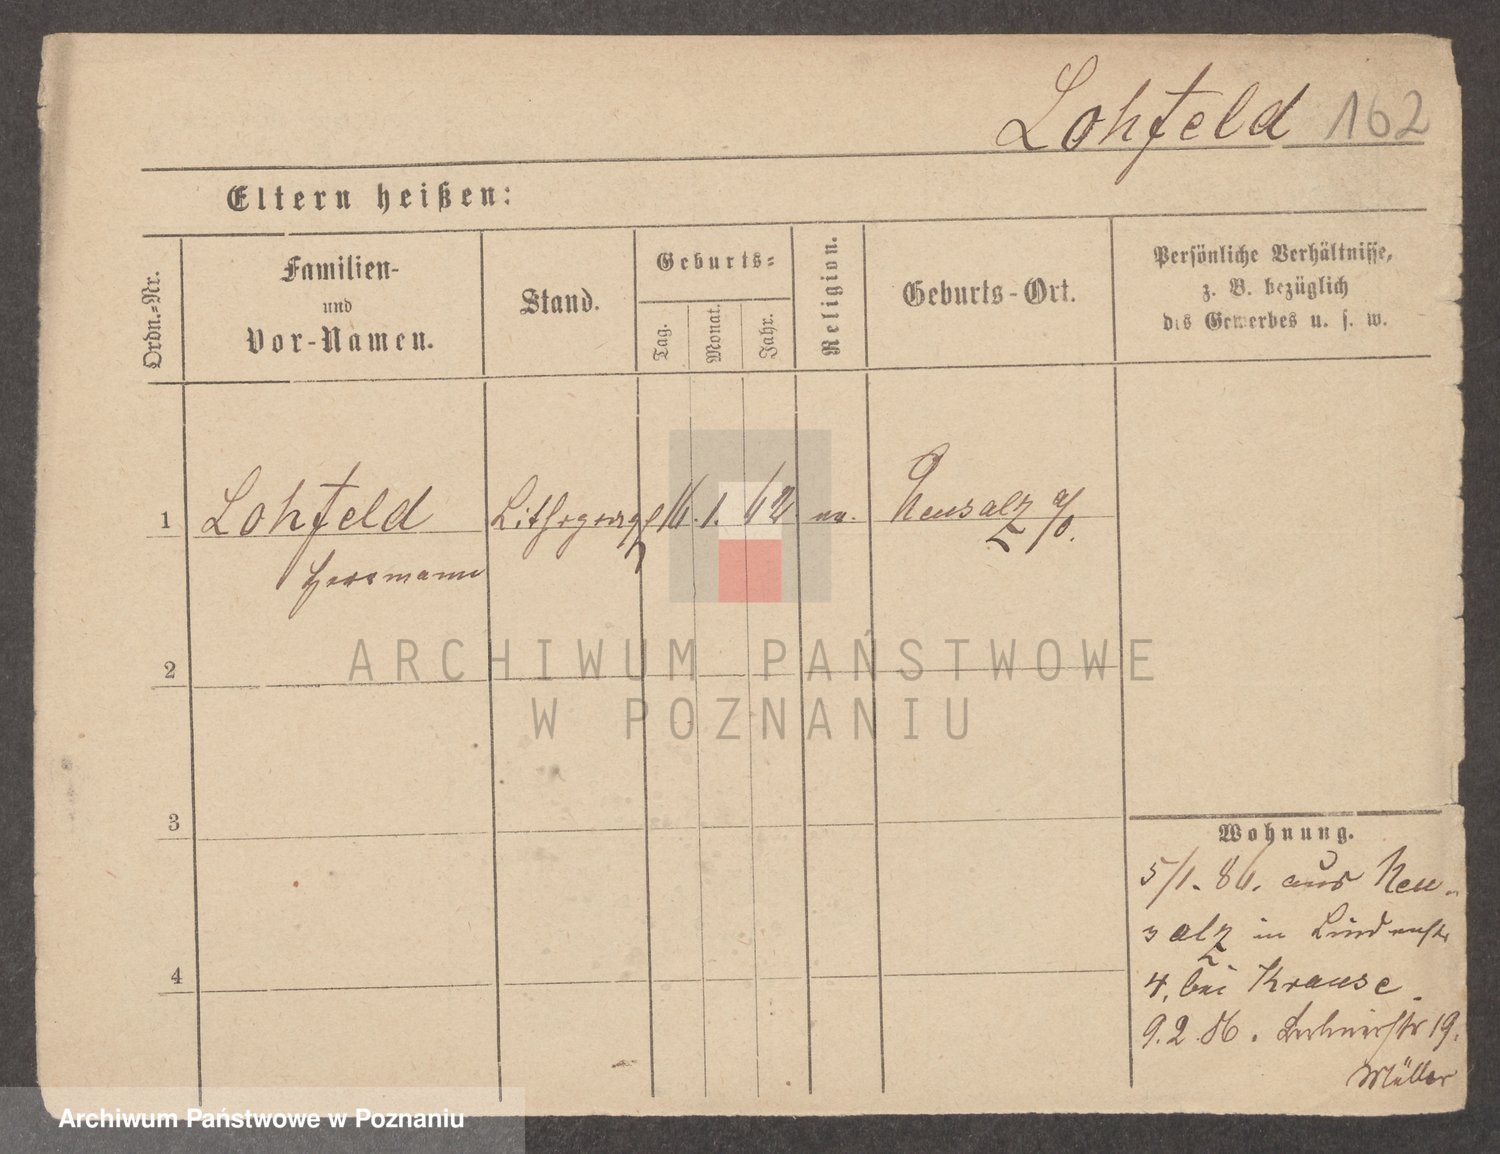 Lohfeld 162
Eltern heißen:
Ordn.-Nr.
Familien-
und
Vor-Namen.
Stand.
Geburts-
Tag.
Monat.
Jahr.
Religion.
Geburts-Ort.
Persönliche Verhältnisse,
z. B. bezüglich
des Gewerbes u. s. w.
1 Lohfeld Lithograph 16. 1. 62 ev. Neusalz a/O.
Herrmann
2
3
4
Wohnung.
5/1. 86. aus Neu-
salz in Lindenstr
4, bei Krause
9.2.86. 19.
Müller
ARCHIWUM PAŃSTWOWE
W POZNANIU
Archiwum Państwowe w Poznaniu